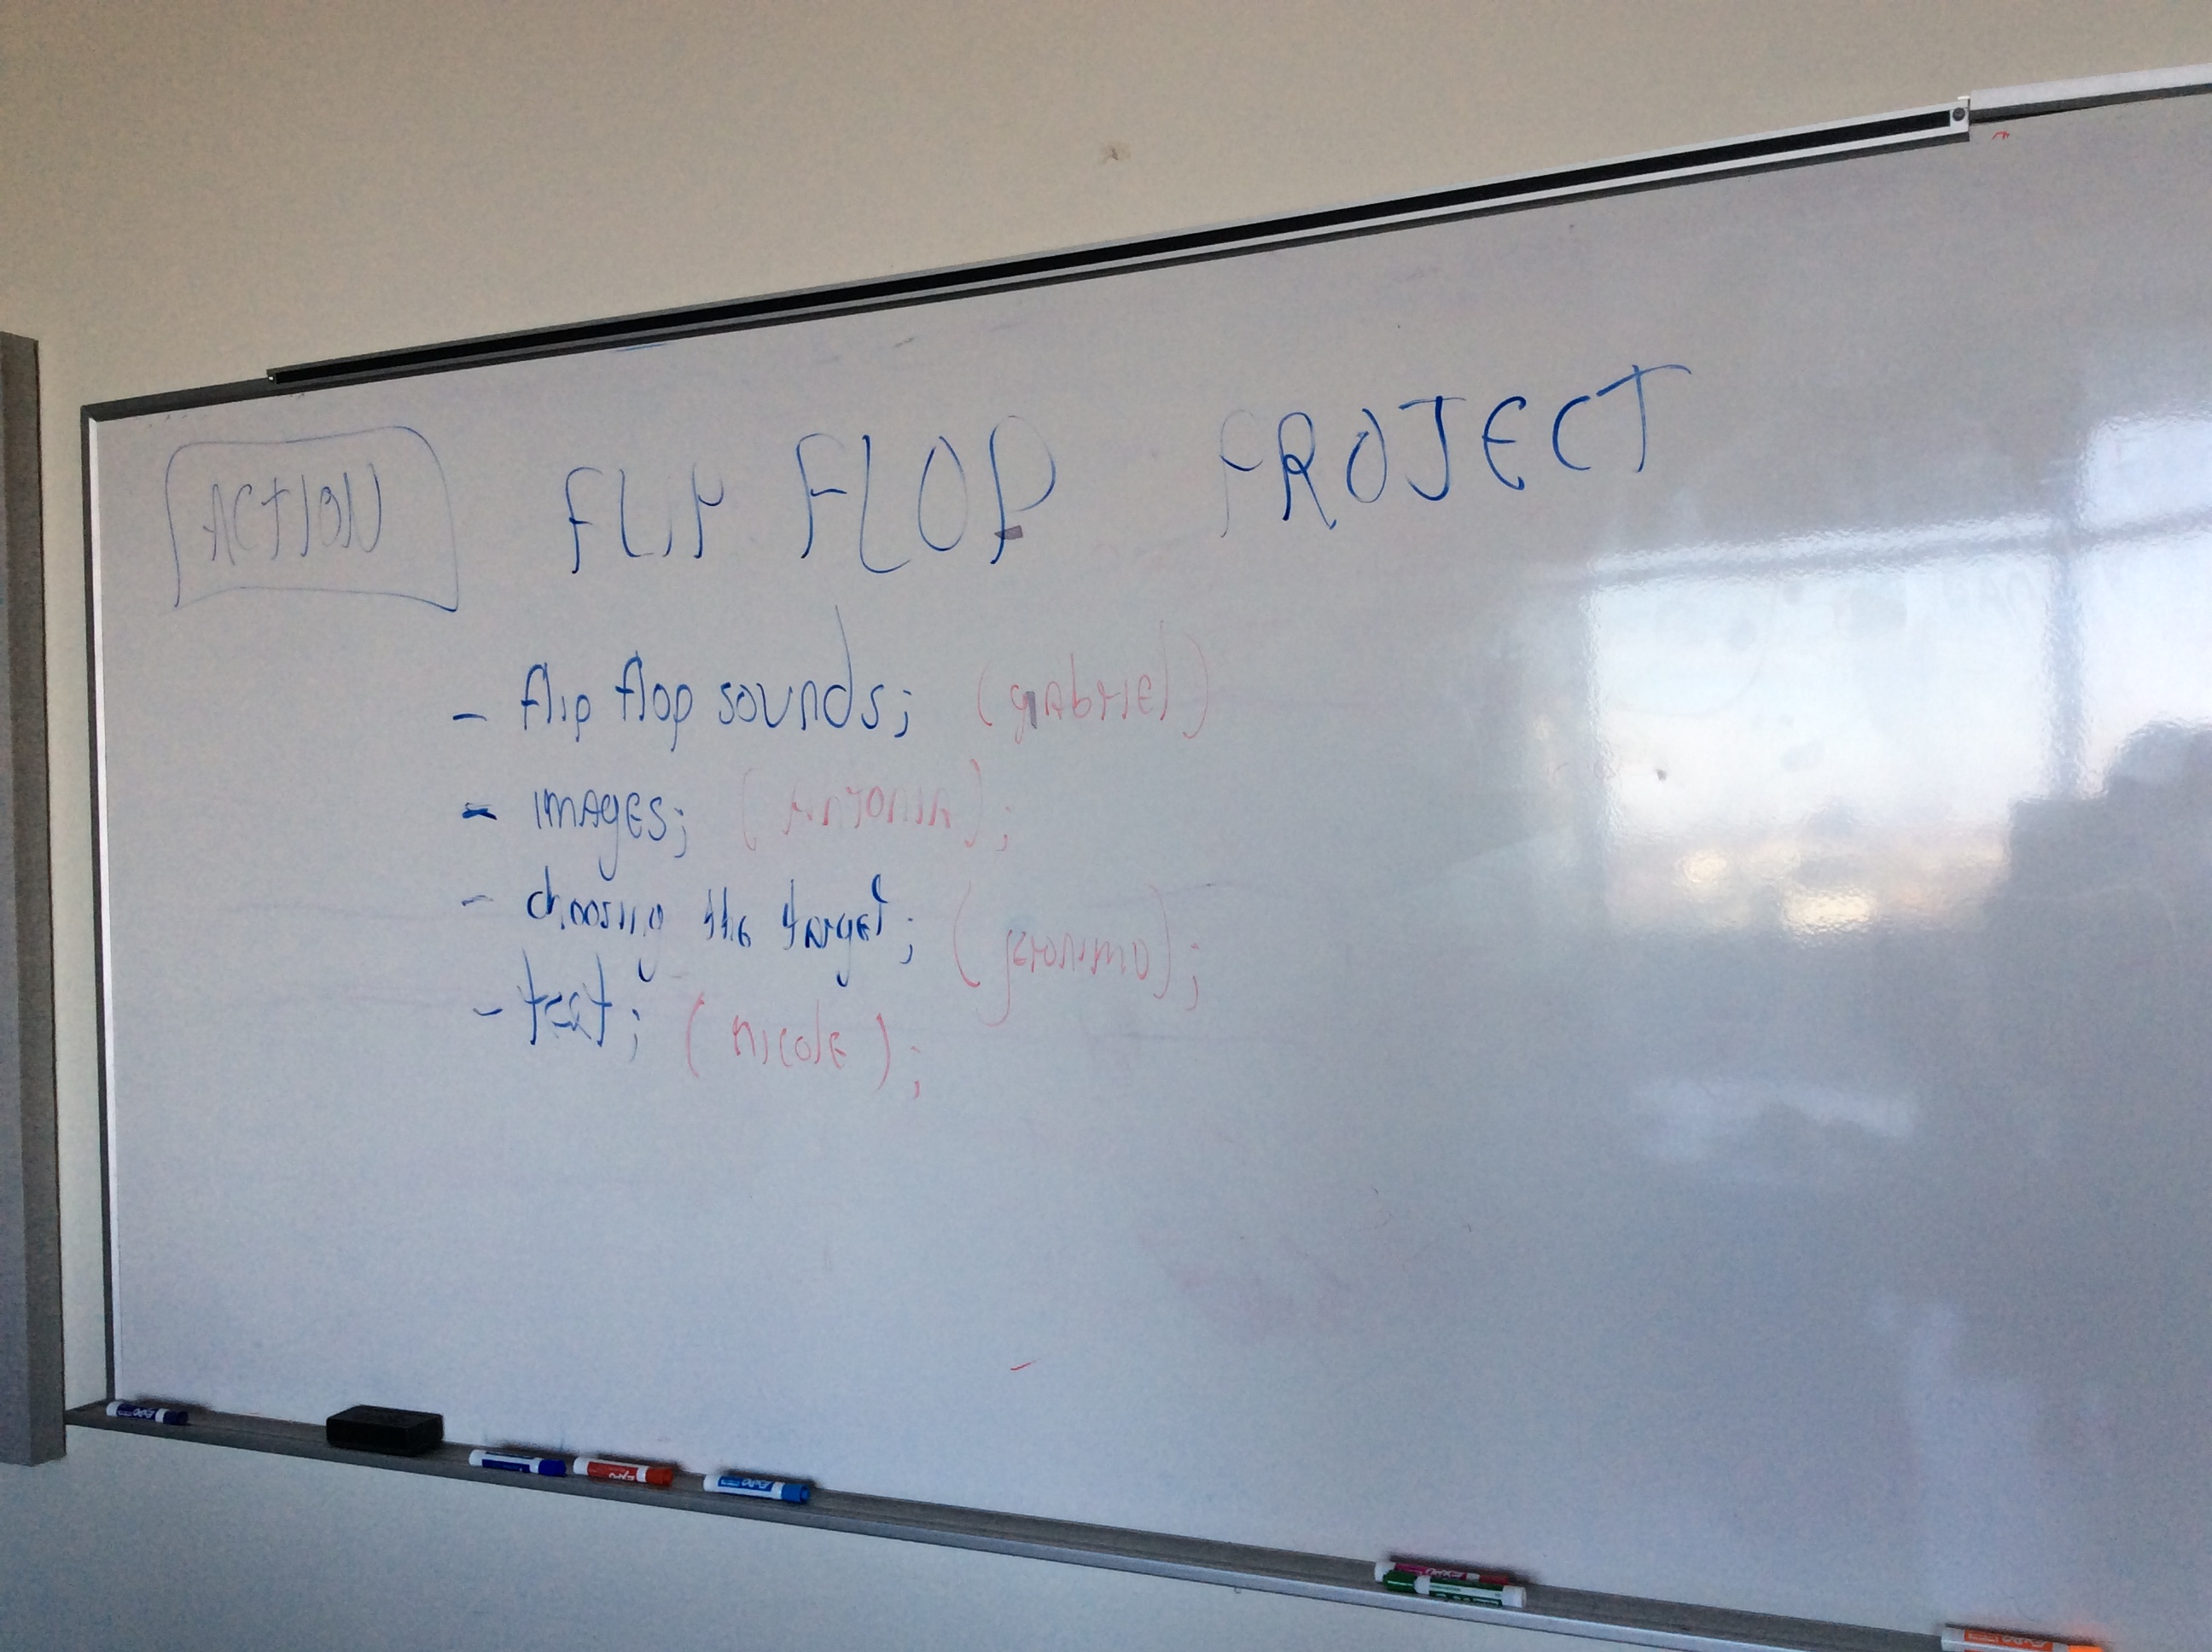 ACTION FLIP FLOP PROJECT
- flip flop sounds; (gabriel)
- IMAGES; (Antonia);
- choosing the target; (jeronimo);
- text; (nicole);